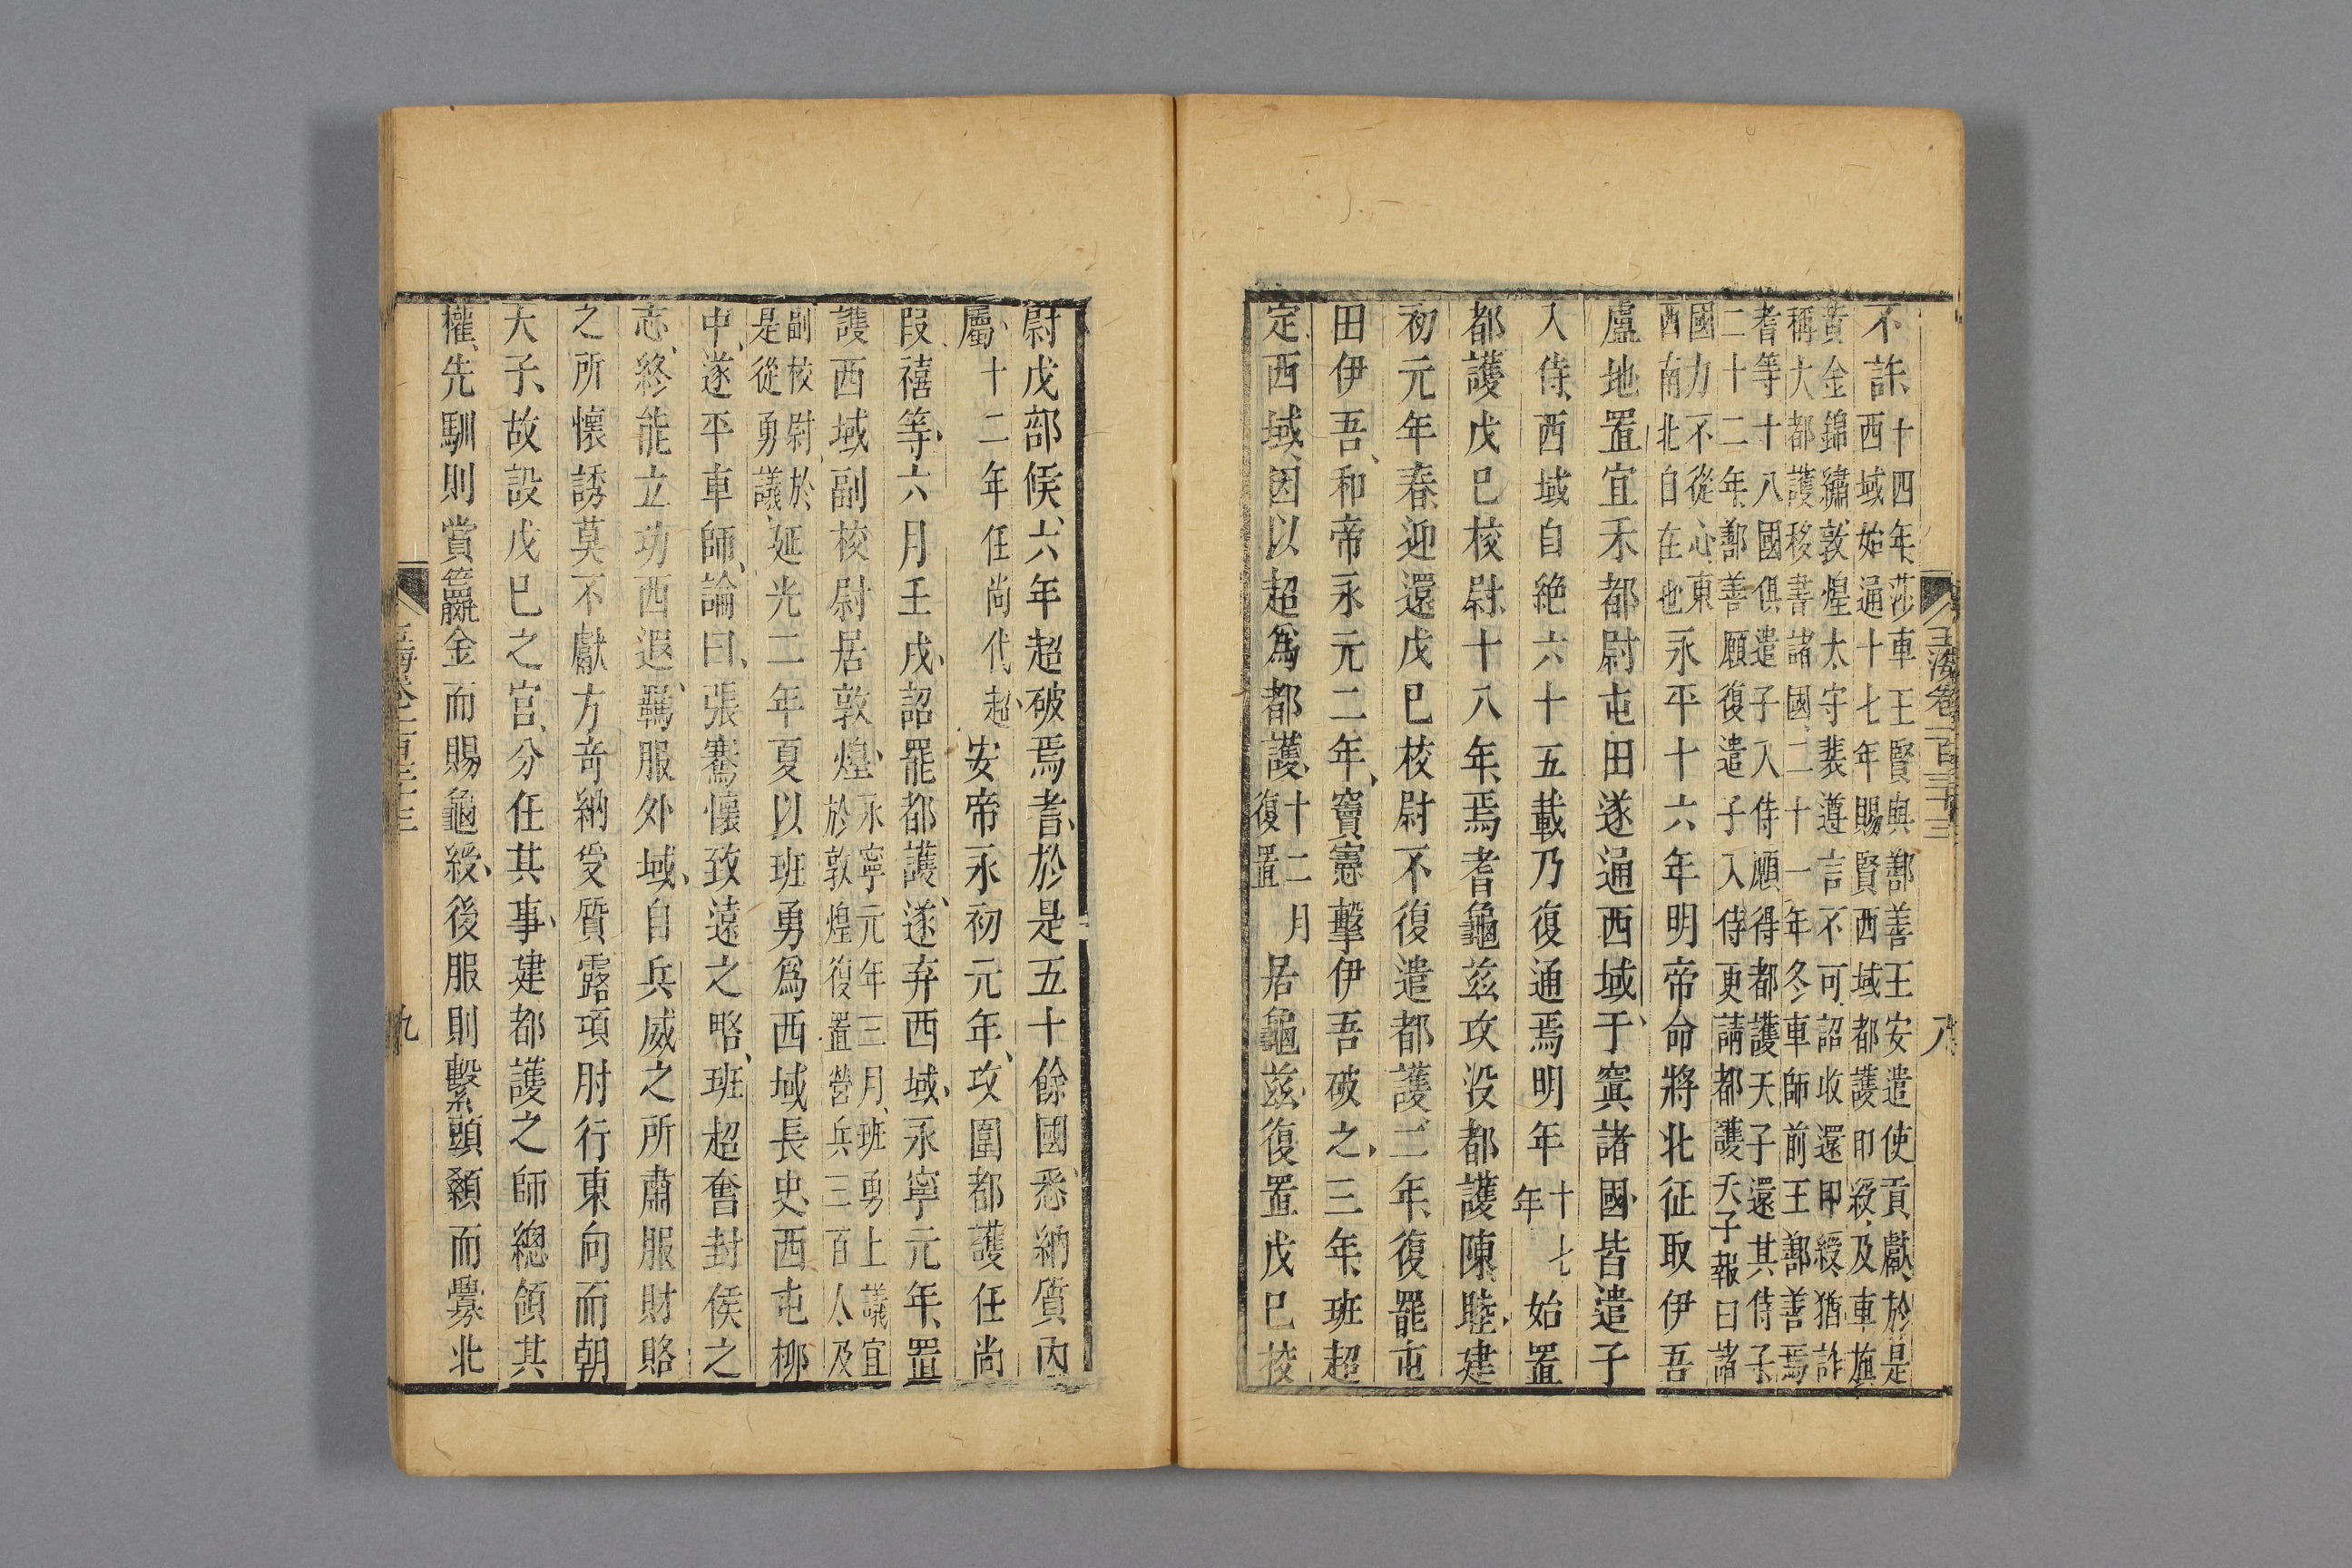 玉海卷一百三十三 八
不許、十四年、莎車王賢與鄯善王安遣使貢獻、於是
西域始通十七年賜賢西域都護印綬、及車旗
黃金錦繡敦煌太守裴遵言不可、詔收還印綬、猶詐
稱大都護移書諸國、二十一年冬、車師前王鄯善焉
耆等十八國俱遣子入侍願得都護天子還其侍子
二十二年、鄯善願復遣子入侍更請都護天子報曰諸
國力不從心、東
西南北自在也永平十六年明帝命將北征取伊吾
盧地置宜禾都尉屯田遂通西域、于窴諸國、皆遣子
入侍、西域自絶六十五載乃復通焉明年十七年始置
都護戊巳校尉、十八年、焉耆龜茲攻没都護陳睦、建
初元年春、迎還戊巳校尉不復遣都護二年、復罷屯
田伊吾、和帝永元二年、竇憲擊伊吾破之、三年、班超
定西域、因以超爲都護、十二月復置居龜茲、復置戊巳校
尉戊部候、六年超破焉耆、於是五十餘國、悉納質內
屬、十二年任尚代超、安帝永初元年、攻圍都護任尚
段禧等、六月壬戌、詔罷都護、遂弃西域、永寧元年、置
護西域副校尉居敦煌、永寧元年三月、班勇上議宜於敦煌復置營兵三百人、及
副校尉、於
是從勇議、延光二年夏以班勇爲西域長史、西屯柳
中、遂平車師、論曰、張騫懷致遠之略、班超奮封侯之
志、終能立功西遐、羈服外域、自兵威之所肅服財賂
之所懷誘莫不獻方奇納愛質露頂肘行東向而朝
天子、故設戊巳之官、分任其事、建都護之師總領其
權、先馴則賞籯金而賜龜綬、後服則繫頭顙而釁北
玉海卷一百三十三 九